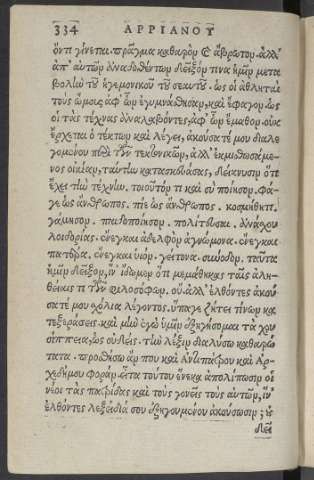 334 ΑΡΡΙΑΝΟΥ
ὄντι γίνεται πρᾶγμα καθαρὸν & ἄβρωτον. ἀλλ᾽
ἀπ᾽ αὐτῶν ἀναδοθέντων δεῖξόν τινα ἡμῖν μετα
βολὴν τοῦ ἡγεμονικοῦ τοῦ σεαυτοῦ. ὡς οἱ ἀθληταὶ
τοὺς ὤμους, ἀφ᾽ ὧν ἐγυμνάσθησαν, καὶ ἔφαγον. ὡς
οἱ τὰς τέχνας ἀναλαβόντες, ἀφ᾽ ὧν ἔμαθον. οὐκ
ἔρχεται ὁ τέκτων καὶ λέγει, ἀκούσατέ μου διαλε
γομένου περὶ τῶν τεκτονικῶν, ἀλλ᾽ ἐκμισθωσάμε
νος οἰκίαν, ταύτην κατασκευάσας, δείκνυσιν ὅτι
ἔχει τὴν τέχνην. τοιοῦτόν τι καὶ σὺ ποίησον. φά
γε ὡς ἄνθρωπος. πίε ὡς ἄνθρωπος. κοσμήθητι.
γάμησον. παιδοποίησον. πολίτευσαι. ἀνάσχου
λοιδορίας. ἔνεγκαι ἀδελφὸν ἀγνώμονα. ἔνεγκαι
πατέρα. ἔνεγκαι υἱόν. γείτονα. σύνοδον. ταῦτα
ἡμῖν δεῖξον, ἵν᾽ ἴδωμεν ὅτι μεμάθηκας ταῖς ἀλη
θείαις τι τῶν φιλοσόφων. οὔ. ἀλλ᾽ ἐλθόντες ἀκού
σατέ μου σχόλια λέγοντος. ὕπαγε ζήτει τίνων κα
τεξεράσεις. καὶ μὴν ἐγὼ ὑμῖν ἐξηγήσομαι τὰ χρυ
σίππεια, ὡς οὐδείς. τὴν λέξιν διαλύσω καθαρώ
τατα. προσθήσω ἄν που καὶ Ἀντιπάτρου καὶ Ἀρ
χεδήμου φοράν. εἶτα τούτου ἕνεκα ἀπολίπωσιν οἱ
νέοι τὰς πατρίδας καὶ τοὺς γονεῖς τοὺς αὑτῶν, ἵν᾽
ἐλθόντες λεξείδιά σου ἐξηγουμένου ἀκούσωσιν;
δεῖ